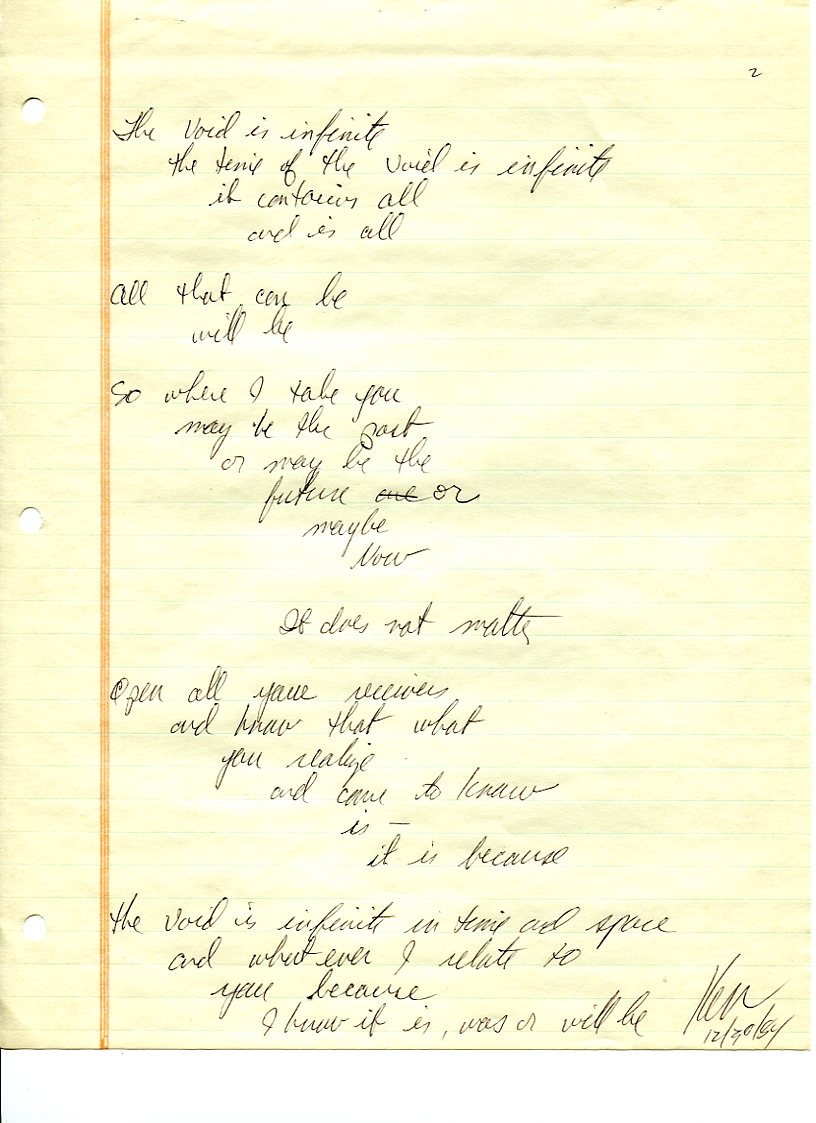 2
The Void is infinite
the time of the void is infinite
it contains all
and is all
All that can be
will be
So where I take you
may be the past
or may be the
future or
maybe
Now
It does not matter
Open all your receivers
and know that what
you realize
and come to know
is —
it is because
the void is infinite in time and space
and what ever I relate to
you because
I know it is, was or will be
12/30/84